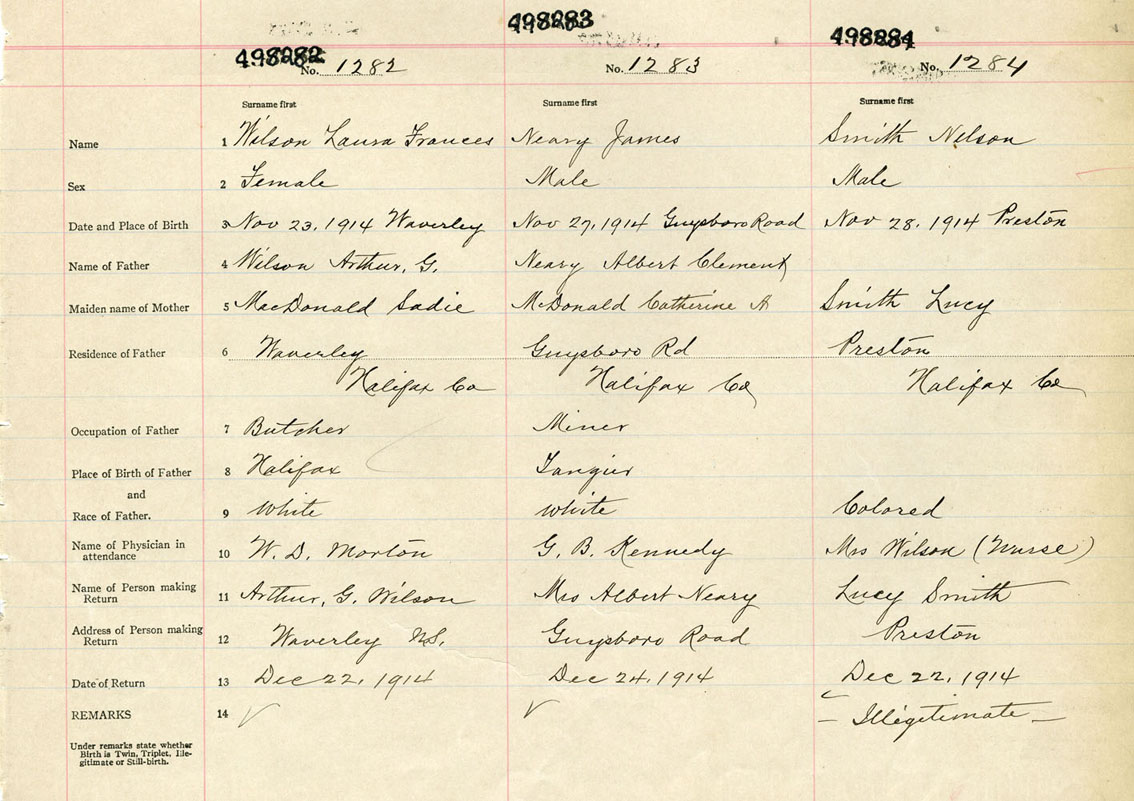 498282 498283 498284
No. 1282 No. 1283 No. 1284
Surname first Surname first Surname first
Name 1 Wilson Laura Frances Neary James Smith Nelson
Sex 2 Female Male Male
Date and Place of Birth 3 Nov 23, 1914 Waverley Nov 27, 1914 Guysboro Road Nov 28, 1914 Preston
Name of Father 4 Wilson Arthur, G. Neary Albert Clement
Maiden name of Mother 5 MacDonald Sadie McDonald Catherine A Smith Lucy
Residence of Father 6 Waverley Guysboro Rd Preston
Halifax Co Halifax Co Halifax Co
Occupation of Father 7 Butcher Miner
Place of Birth of Father 8 Halifax Tangier
and
Race of Father. 9 White White Colored
Name of Physician in
attendance 10 W. D. Morton G. B. Kennedy Mrs Wilson (Nurse)
Name of Person making
Return 11 Arthur, G. Wilson Mrs Albert Neary Lucy Smith
Address of Person making
Return 12 Waverley N.S. Guysboro Road Preston
Date of Return 13 Dec 22, 1914 Dec 24, 1914 Dec 22, 1914
REMARKS 14 √ √ – Illegitimate –
Under remarks state whether
Birth is Twin, Triplet, Ille-
gitimate or Still-birth.